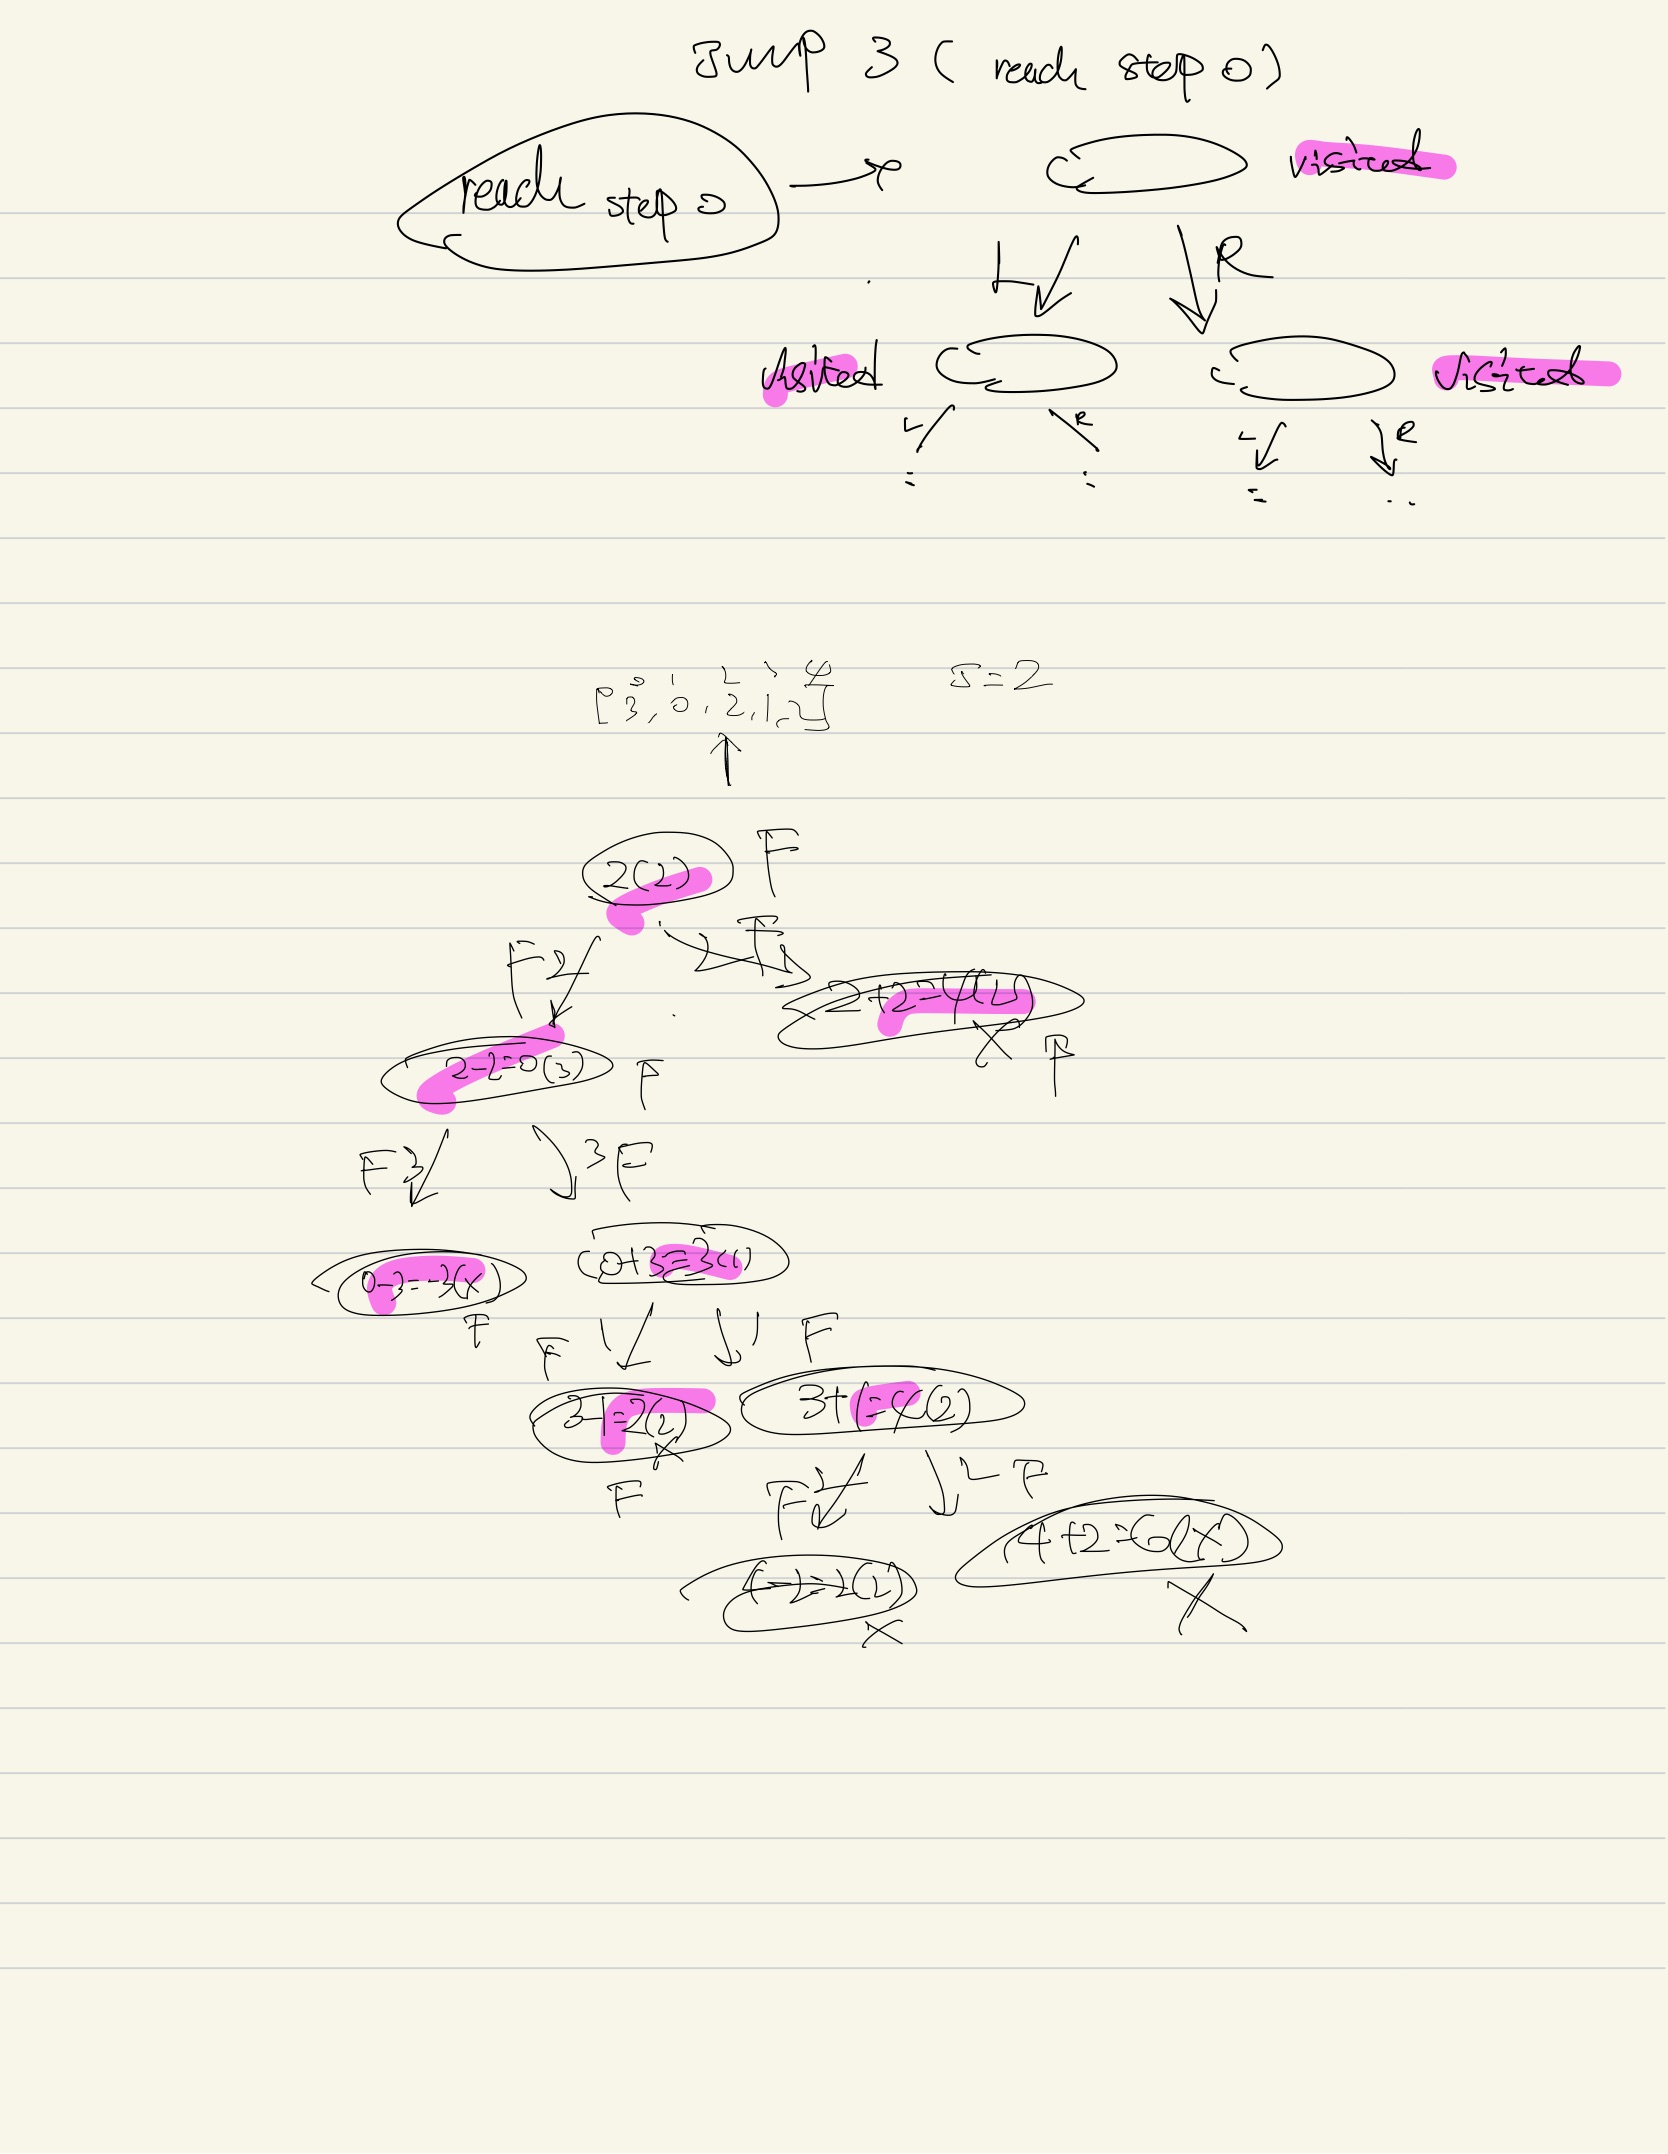 Jump 3 ( reach step 0)
reach step 0
visited
L R
visited visited
L R L R
0 1 2 3 4
[3, 0, 2, 1, 2] S=2
2(2) F
F 2 2 F
2+2=4(2)
X F
2-2=0(3) F
F 3 3 F
0-3=-3(x) 0+3=3(1)
F
F 1 1 F
3-1=2(2) 3+1=4(2)
X
F
F 2 2 F
4+2=6(X)
4-2=2(2) X
X